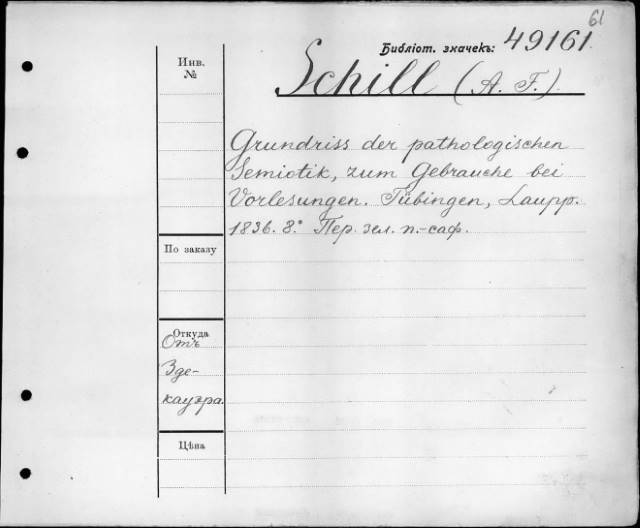 61
Библіот. значекъ: 49161.
Инв.
№
Schill (A. F.).
Grundriss der pathologischen
Semiotik, zum Gebrauche bei
Vorlesungen. Tübingen, Laupp.
1836. 8.° Пер. зел. п.-саф.
По заказу
Откуда
Отъ
Зде-
кауэра.
Цѣна